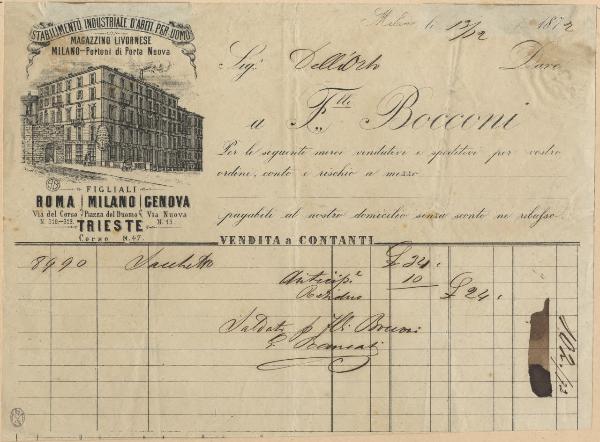 STABILIMENTO INDUSTRIALE D'ABITI PER UOMO
MAGAZZINO LIVORNESE
MILANO–Portoni di Porta Nuova
FIGLIALI
ROMA MILANO GENOVA
Via del Corso Piazza del Duomo Via Nuova
TRIESTE
Corso N. 47.
Milano li 13/12 1872
Sig.r Dell'Orto Dare
a F.lli Bocconi
Per le seguente merci vendutevi e speditevi per vostro
ordine, conto e rischio a mezzo
pagabili al nostro domicilio senza sconto ne ribasso.
VENDITA a CONTANTI
8990 Sacchetto £ 34.
Anticip.e 10
£ 24.
Saldato p F.lli Bocconi